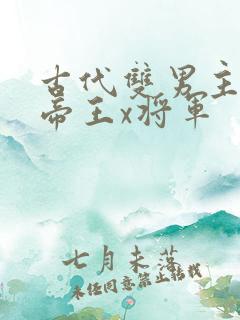 古代雙男主
帝王x將軍
七月未落
未經同意禁止轉載